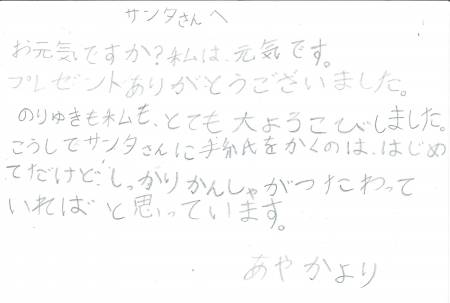 サンタさんへ
お元気ですか?私は、元気です。
プレゼントありがとうございました。
のりゆきも私も、とても大ようこびしました。
こうしてサンタさんに手紙をかくのは、はじめ
てだけど、しっかりかんしゃがつたわって
いればと思っています。
あやかより